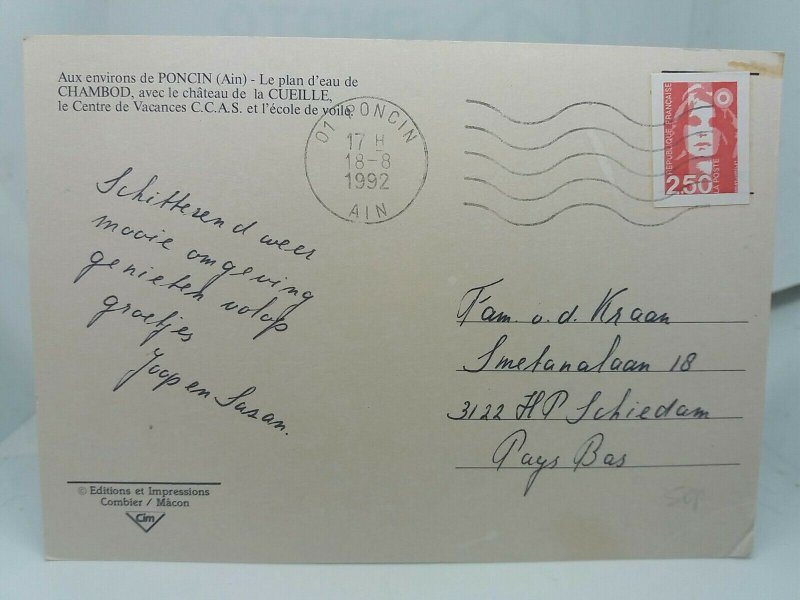 Aux environs de PONCIN (Ain) - Le plan d'eau de
CHAMBOD, avec le château de la CUEILLE,
le Centre de Vacances C.C.A.S. et l'école de voile.
01 PONCIN
17 H
18-8
1992
AIN
REPUBLIQUE FRANÇAISE
2,50
LA POSTE
Schitterend weer
mooie omgeving
genieten volop
groetjes
Joop en Susan.
Fam. v.d. Kraan
Smetanalaan 18
3122 HP Schiedam
Pays Bas
© Editions et Impressions
Combier / Mâcon
Cim